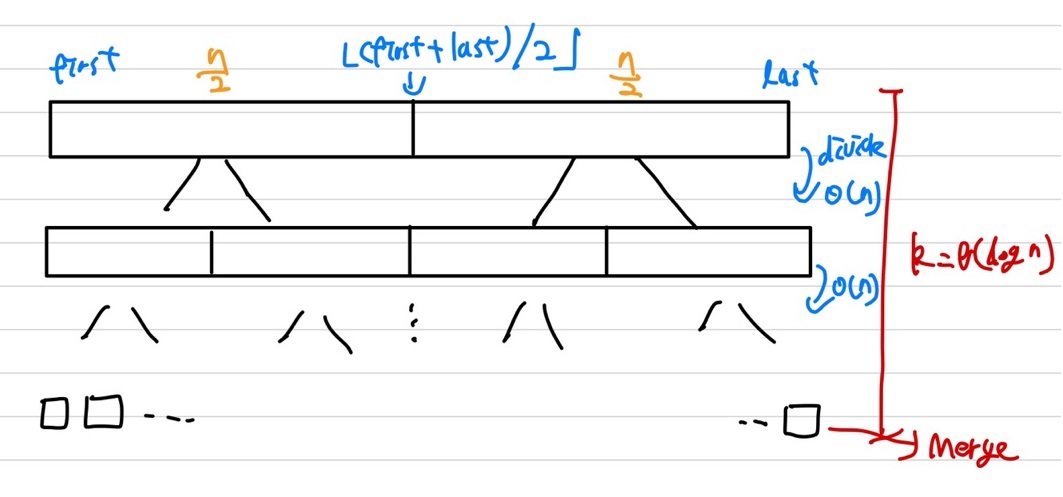 first
n/2
⌊(first+last)/2⌋
n/2
last
divide
Θ(n)
Θ(n)
k=Θ(log n)
Merge